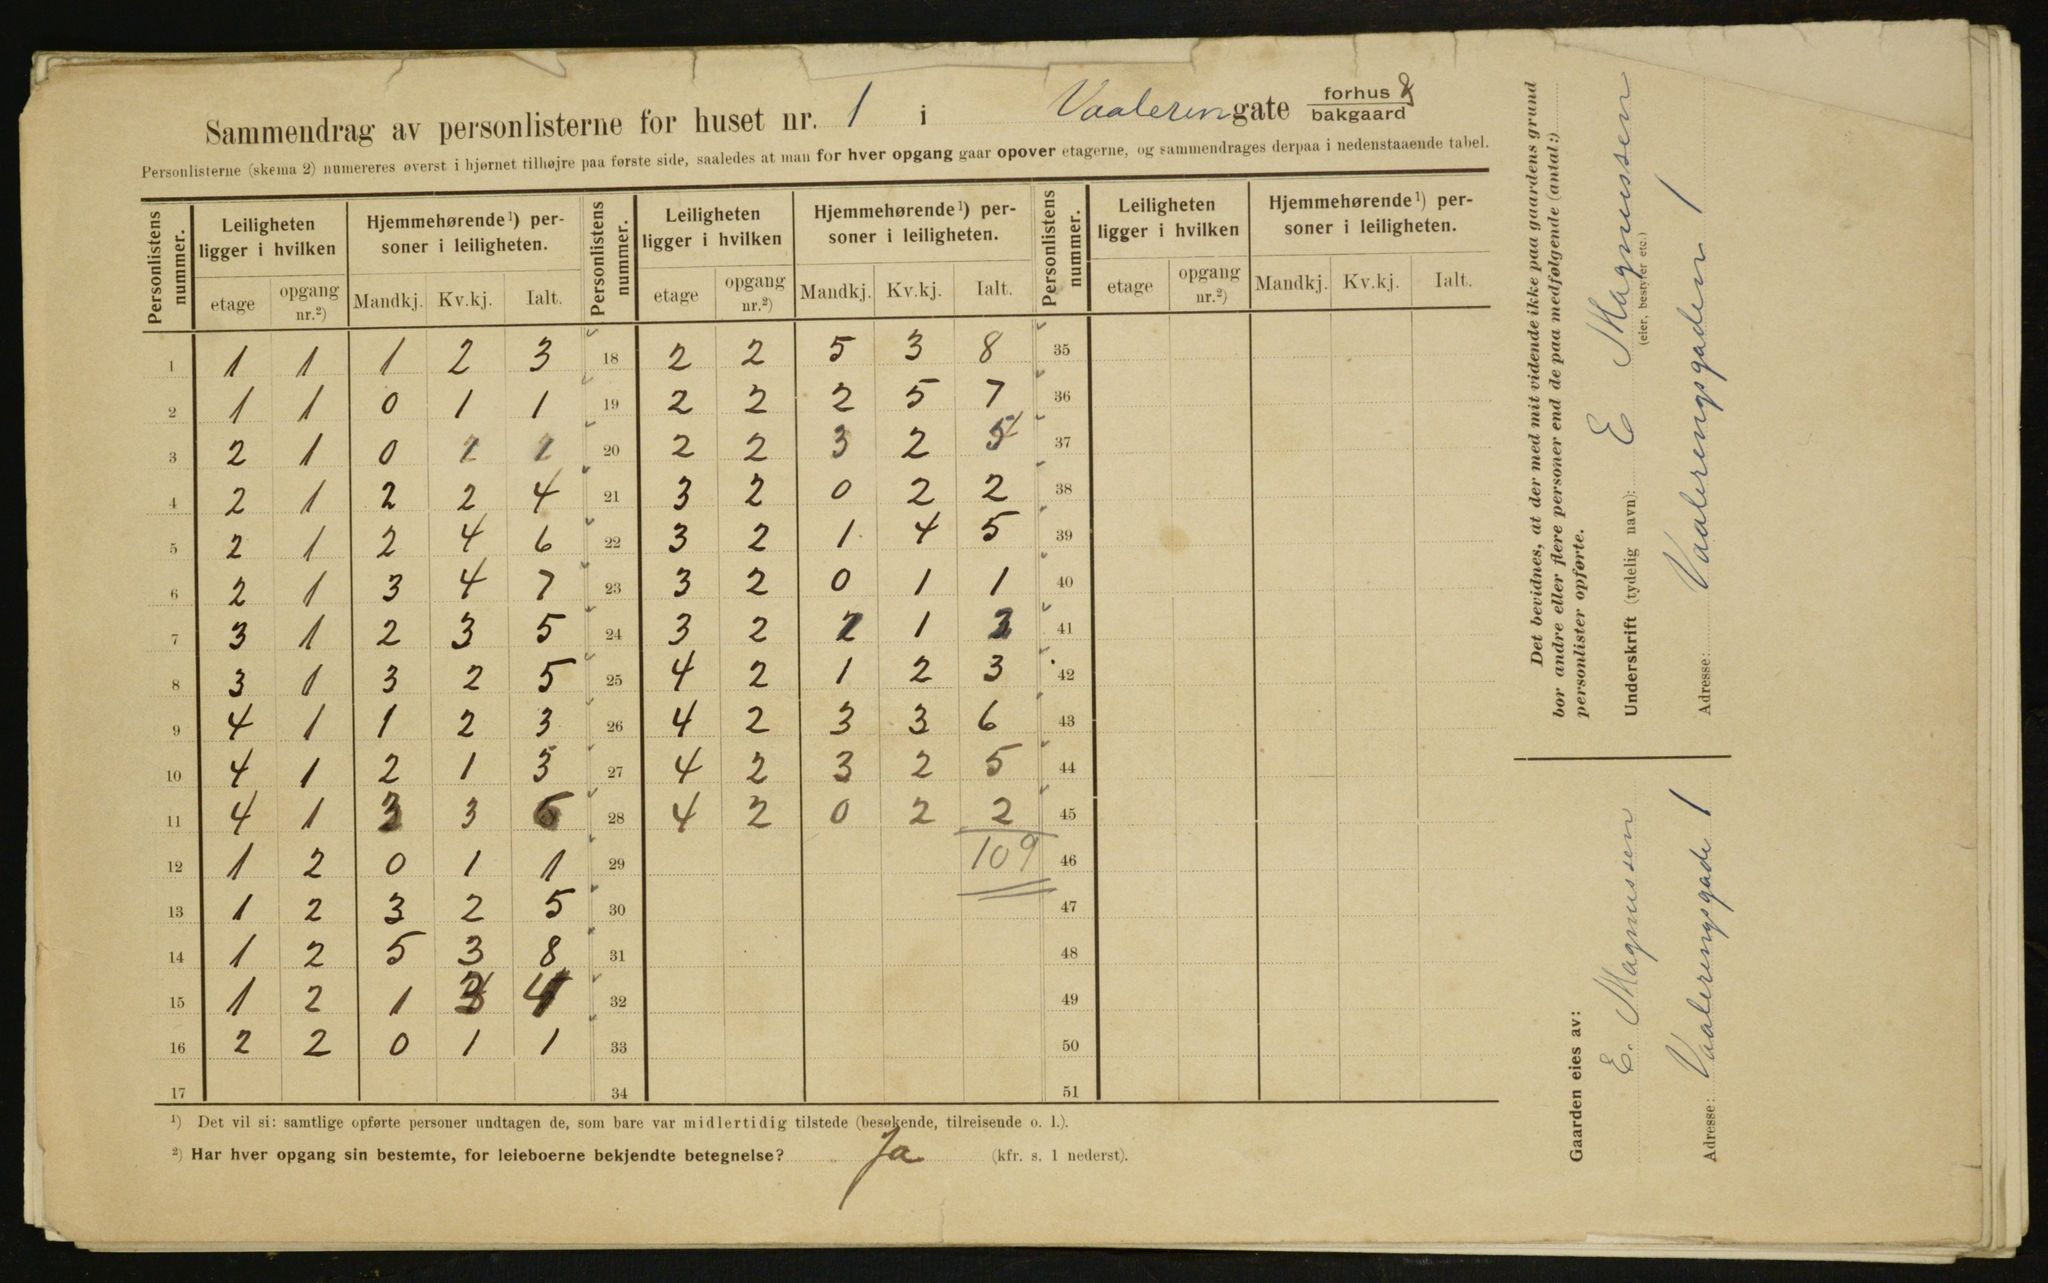 Sammendrag av personlisterne for huset nr. 1 i Vaaleringate forhus & bakgaard
Personlisterne (skema 2) numereres øverst i hjørnet tilhøjre paa første side, saaledes at man for hver opgang gaar opover etagerne, og sammendrages derpaa i nedenstaaende tabel.
Personlistens nummer. Leiligheten ligger i hvilken Hjemmehørende¹) personer i leiligheten. Personlistens nummer. Leiligheten ligger i hvilken Hjemmehørende¹) personer i leiligheten. Personlistens nummer. Leiligheten ligger i hvilken Hjemmehørende¹) personer i leiligheten.
etage opgang nr.²) Mandkj. Kv.kj. Ialt. etage opgang nr.²) Mandkj. Kv.kj. Ialt. etage opgang nr.²) Mandkj. Kv.kj. Ialt.
1 1 1 1 2 3 18 2 2 5 3 8 35
2 1 1 0 1 1 19 2 2 2 5 7 36
3 2 1 0 20 2 2 3 2 37
4 2 1 2 2 4 21 3 2 0 2 2 38
5 2 1 2 4 6 22 3 2 1 4 5 39
6 2 1 3 4 7 23 3 2 0 1 1 40
7 3 1 2 3 5 24 3 2 1 41
8 3 1 3 2 5 25 4 2 1 2 3 42
9 4 1 1 2 3 26 4 2 3 3 6 43
10 4 1 2 1 3 27 4 2 3 2 5 44
11 4 1 3 3 6 28 4 2 0 2 2 45
12 1 2 0 1 1 29 109 46
13 1 2 3 2 5 30 47
14 1 2 5 3 8 31 48
15 1 2 1 3 4 32 49
16 2 2 0 1 1 33 50
17 34 51
¹) Det vil si: samtlige opførte personer undtagen de, som bare var midlertidig tilstede (besøkende, tilreisende o. l.).
²) Har hver opgang sin bestemte, for leieboerne bekjendte betegnelse? Ja (kfr. s. 1 nederst).
Det bevidnes, at der med mit vidende ikke paa gaardens grund
bor andre eller flere personer end de paa medfølgende (antal:)
personlister opførte.
Underskrift (tydelig navn): E Magnussen
(eier, bestyrer etc.)
Adresse: Vaalerengsgaden 1
Gaarden eies av:
E. Magnussen
Adresse: Vaalerengsgade 1